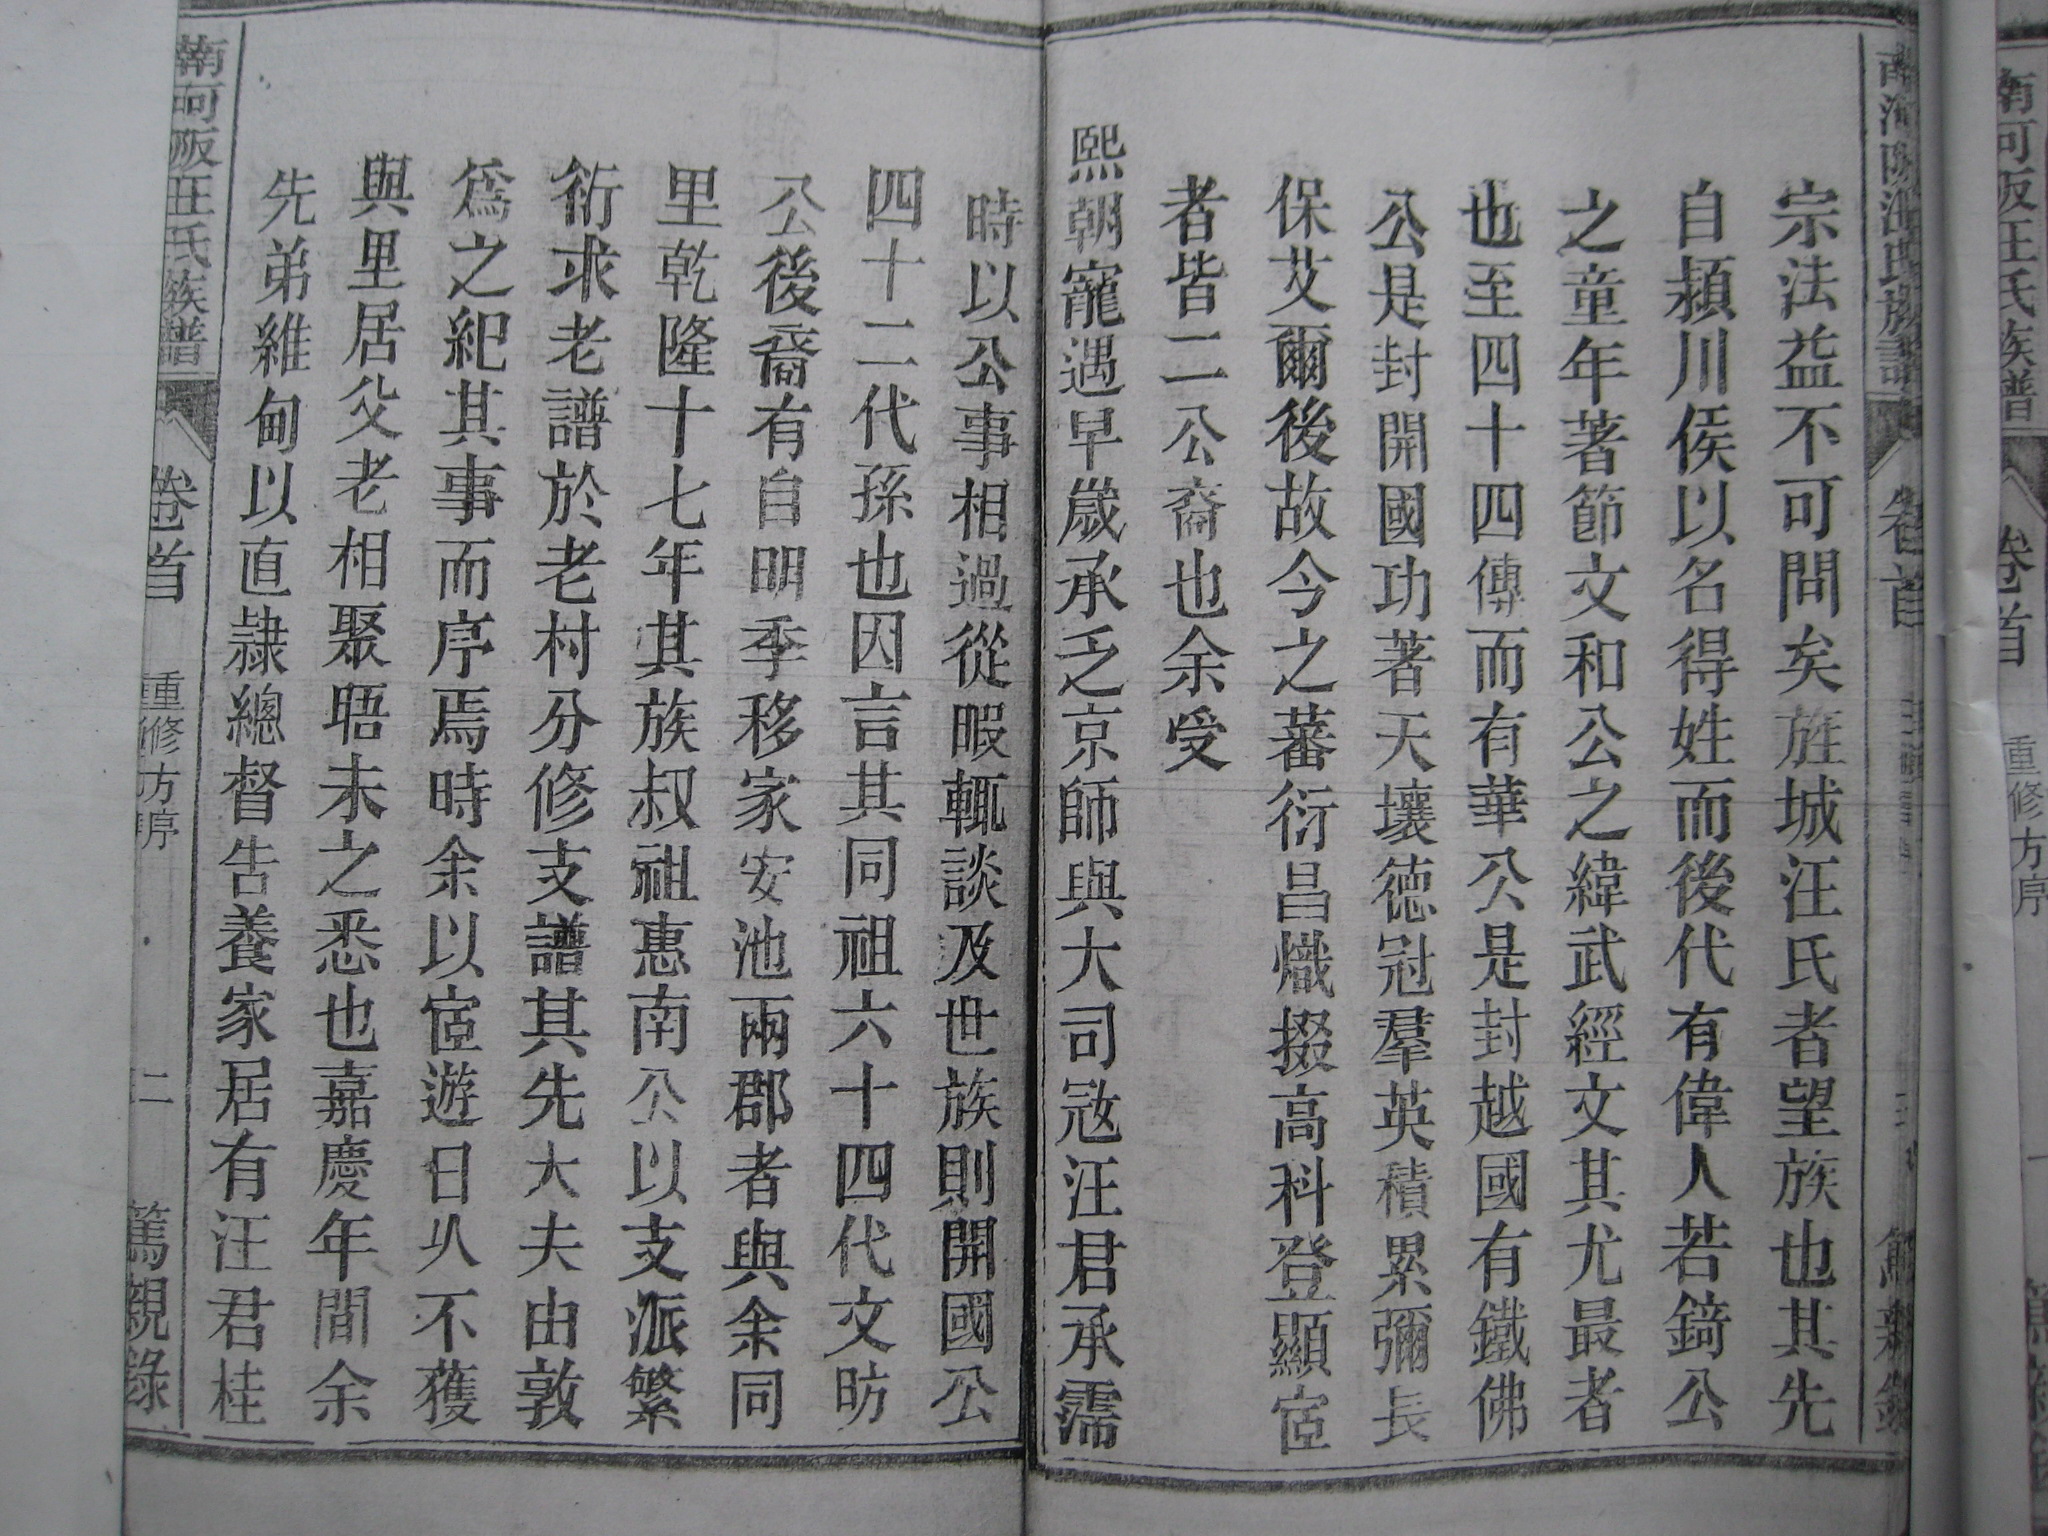 南阿阪汪氏族譜 卷首 重修方序
宗法益不可問矣旌城汪氏者望族也其先
自潁川侯以名得姓而後代有偉人若錡公
之童年著節文和公之緯武經文其尤最者
也至四十四傳而有華公是封越國有鐵佛
公是封開國功著天壤德冠羣英積累彌長
保艾爾後故今之蕃衍昌熾掇高科登顯宦
者皆二公裔也余受
熙朝寵遇早歲承乏京師與大司寇汪君承霈
時以公事相過從暇輒談及世族則開國公
四十二代孫也因言其同祖六十四代文昉
公後裔有自明季移家安池兩郡者與余同
里乾隆十七年其族叔祖惠南公以支派繁
衍求老譜於老村分修支譜其先大夫由敦
爲之紀其事而序焉時余以宦遊日久不獲
與里居父老相聚晤未之悉也嘉慶年間余
先弟維甸以直隸總督告養家居有汪君桂
南阿阪汪氏族譜 卷首 重修方序 二 篤親錄